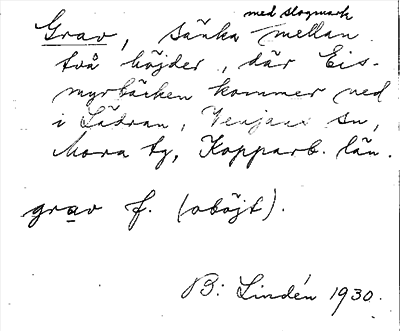 med slogmark
Grav, sänka mellan
två höjder, där Eis-
myrbäcken kommer ned
i Lädran, Venjans sn,
Mora tg, Kopparb. län.
grav f. (oböjt).
B: Lindén 1930.